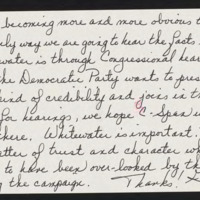 becoming more and more obvious t
ly way we are going to hear the facts
water is through Congressional hear
the Democratic Party wants to pres
kind of credibility and joins in t
for hearings, we hope C-Span w
there. Whitewater is important.
atter of trust and character wh
to have been over-looked by th
g the campaign. Thanks,